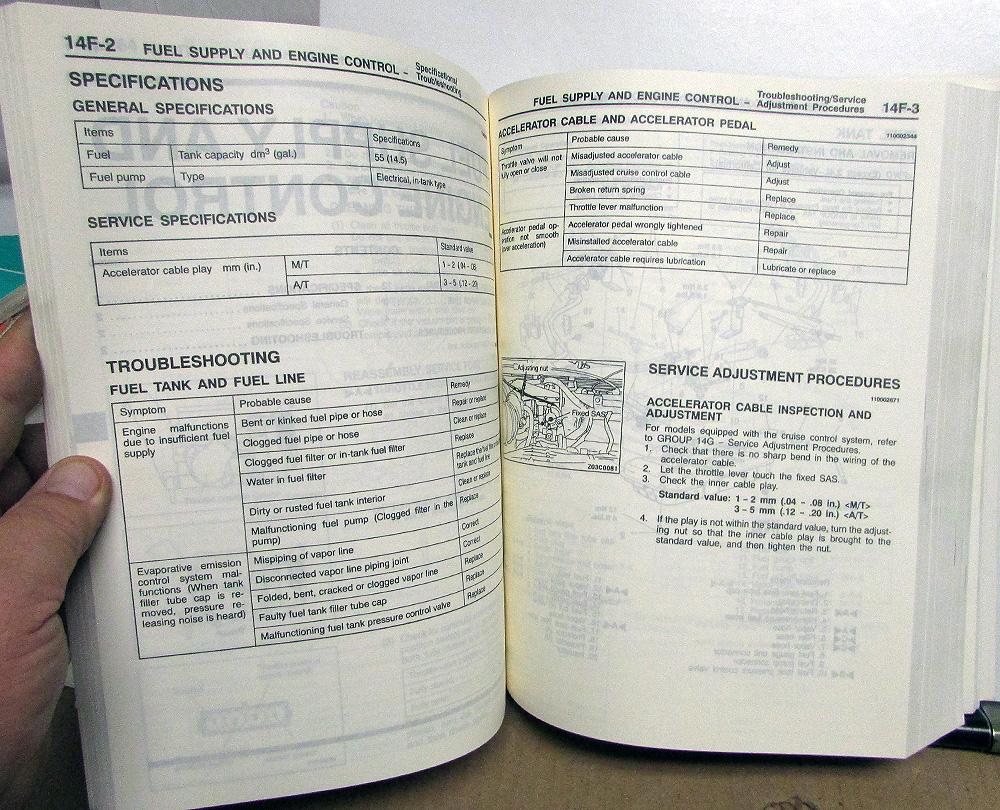 14F-2 FUEL SUPPLY AND ENGINE CONTROL – Specifications/
Troubleshooting
SPECIFICATIONS
GENERAL SPECIFICATIONS
Items Specifications
Fuel Tank capacity dm3 (gal.) 55 (14.5)
Fuel pump Type Electrical, in-tank type
SERVICE SPECIFICATIONS
Items Standard value
Accelerator cable play mm (in.) M/T 1 - 2 (.04 - .08
A/T 3 - 5 (.12 - .20)
TROUBLESHOOTING
FUEL TANK AND FUEL LINE
Symptom Probable cause Remedy
Engine malfunctions
due to insufficient fuel
supply
Bent or kinked fuel pipe or hose Repair or replace
Clogged fuel pipe or hose Clean or replace
Clogged fuel filter or in-tank fuel filter Replace
Water in fuel filter Replace the fuel filter
tank and fuel line
Dirty or rusted fuel tank interior Clean or replace
Malfunctioning fuel pump (Clogged filter in the
pump) Replace
Evaporative emission
control system mal-
functions (When tank
filler tube cap is re-
moved, pressure re-
leasing noise is heard)
Mispiping of vapor line Correct
Disconnected vapor line piping joint Correct
Folded, bent, cracked or clogged vapor line Replace
Faulty fuel tank filler tube cap Replace
Malfunctioning fuel tank pressure control valve Replace
FUEL SUPPLY AND ENGINE CONTROL – Troubleshooting/Service
Adjustment Procedures 14F-3
ACCELERATOR CABLE AND ACCELERATOR PEDAL
110002344
Symptom Probable cause Remedy
Throttle valve will not
fully open or close
Misadjusted accelerator cable Adjust
Misadjusted cruise control cable Adjust
Broken return spring Replace
Throttle lever malfunction Replace
Accelerator pedal op-
eration not smooth
(over acceleration)
Accelerator pedal wrongly tightened Repair
Misinstalled accelerator cable Repair
Accelerator cable requires lubrication Lubricate or replace
Adjusting nut
Fixed SAS
Z03C0081
SERVICE ADJUSTMENT PROCEDURES
110002671
ACCELERATOR CABLE INSPECTION AND
ADJUSTMENT
For models equipped with the cruise control system, refer
to GROUP 14G – Service Adjustment Procedures.
1. Check that there is no sharp bend in the wiring of the
accelerator cable.
2. Let the throttle lever touch the fixed SAS.
3. Check the inner cable play.
Standard value: 1 – 2 mm (.04 – .08 in.) <M/T>
3 – 5 mm (.12 – .20 in.) <A/T>
4. If the play is not within the standard value, turn the adjust-
ing nut so that the inner cable play is brought to the
standard value, and then tighten the nut.